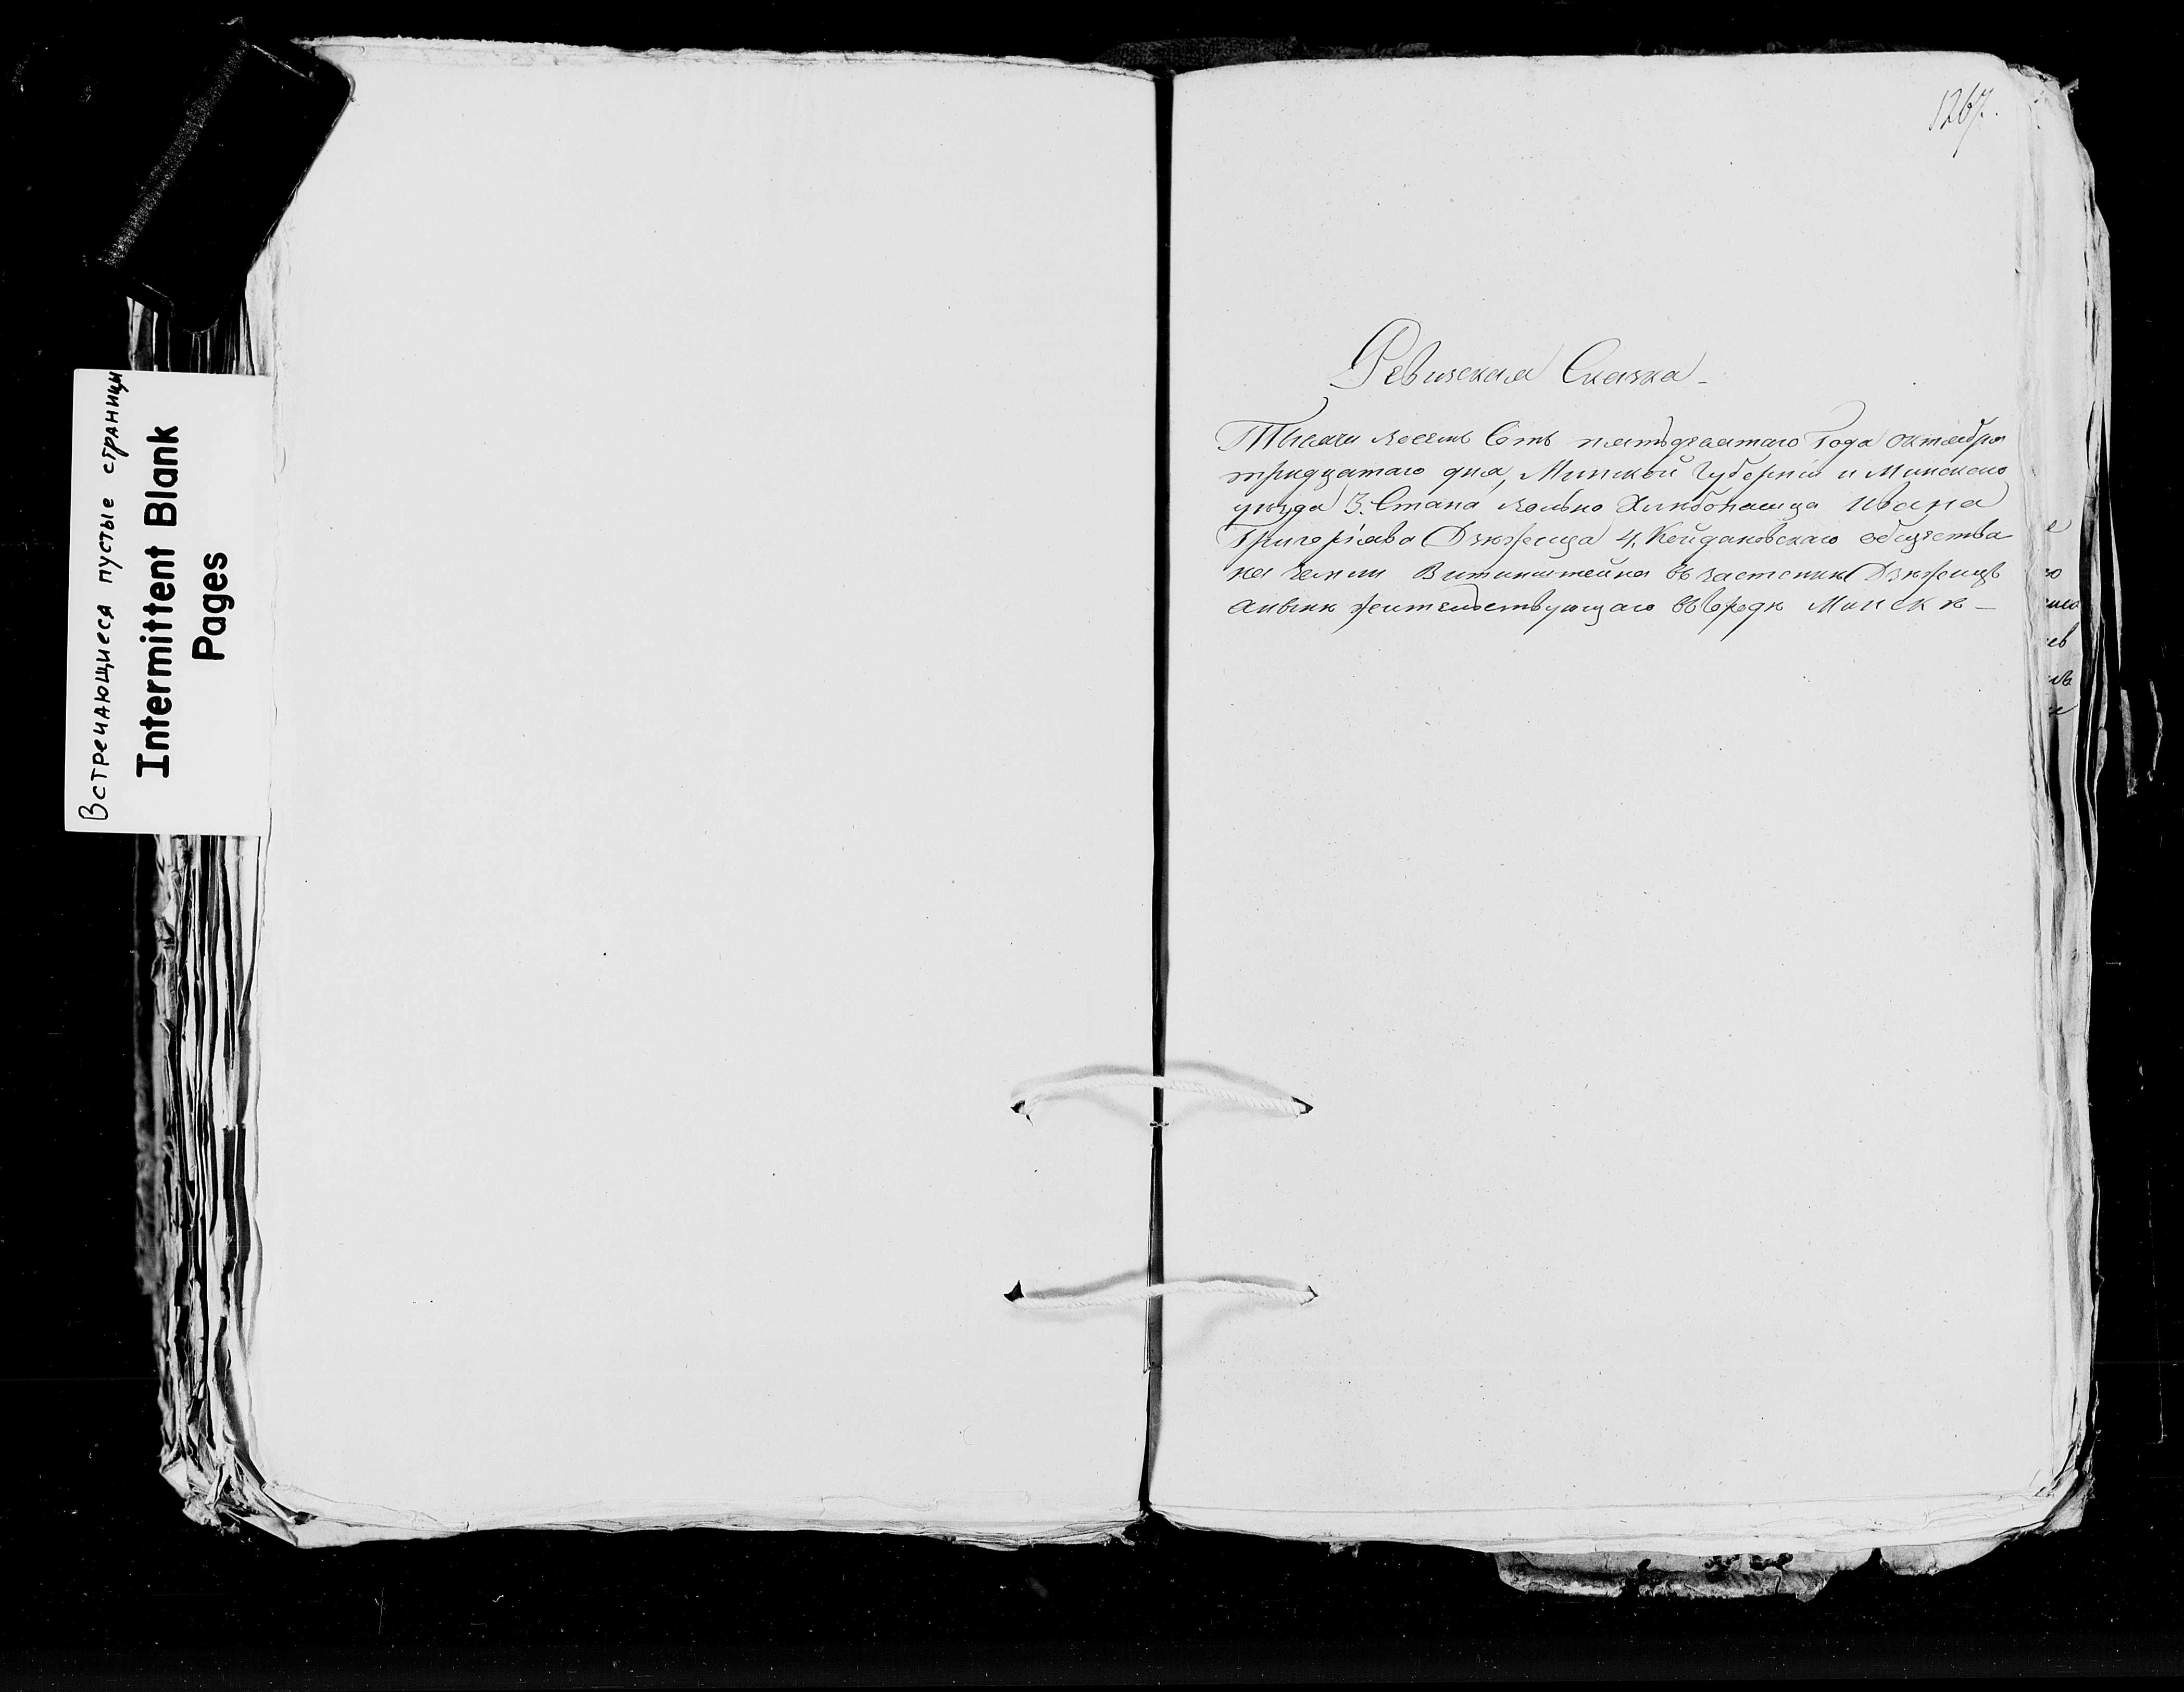 Встречающиеся пустые страницы
Intermittent Blank
Pages
1267.
Ревизская Сказка
Тысячи восемь Сотъ пятьдесятаго Года октября
тридцатаго дня, Минской Губерніи и Минскаго
уѣзда 3. Стана вольно Хлѣбопашца Ивана
Григоріева Дзюжеица 4. Койдановскаго общества
на земли Витинштейна въ застенкѣ
жительствующаго въ Городѣ Минскѣ